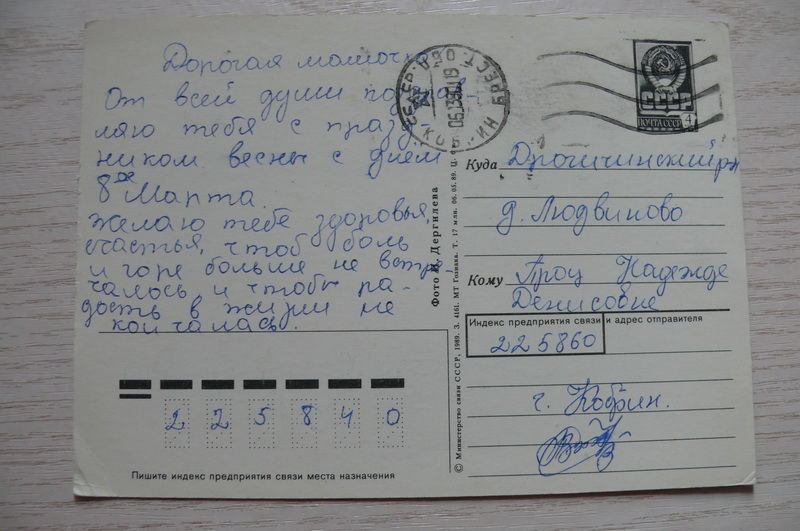 Дорогая мамочка
От всей души поздрав-
ляю тебя с празд
ником весны с днем
8ое Марта.
Желаю тебе здоровья,
счастья, чтоб боль
и горе больше не встре
чалось, и чтобы ра-
дость в жизни не
кончалась.
2 2 5 8 4 0
Пишите индекс предприятия связи места назначения
Фото Н. Дергилева
© Министерство связи СССР, 1989. З. 4161. МТ Гознака. Т. 17 млн. 06.05.89. Ц.
СССР
ПОЧТА СССР 4
БРЕСТ. ОБЛ.
Куда Дрогичинский р-н
д. Людвиново
Кому Проц Надежде
Денисовне
Индекс предприятия связи и адрес отправителя
225860
г. Кобрин.